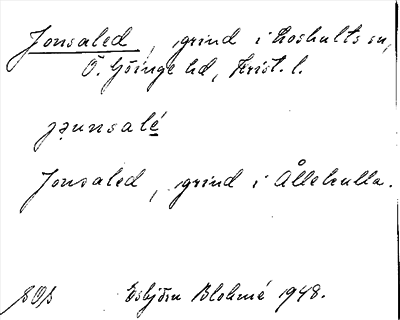 Jonsaled, grind i Loshults sn,
Ö. Göinge hd, Krist. l.
jɔunsalé
Jonsaled, grind i Ållekulla.
SOB Esbjörn Blohmé 1948.